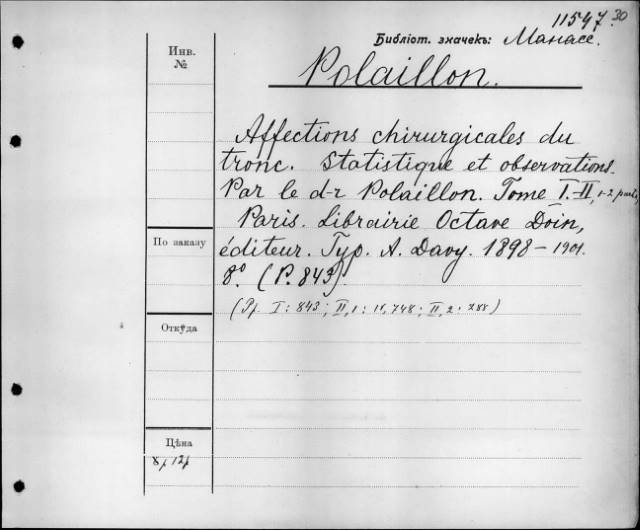 11547.30
Библіот. значекъ: Манасе.
Инв.
№
Polaillon.
Affections chirurgicales du
tronc. Statistique et observations.
Par le d-r Polaillon. Tome I.-II, 1-2 part.
Paris. Librairie Octave Doin,
По заказу
éditeur. Typ. A. Davy. 1898 – 1901.
8º. (P. 843)
(Pf. I: 843; II,1: 16,748; II,2: 288)
Откуда
Цѣна
12